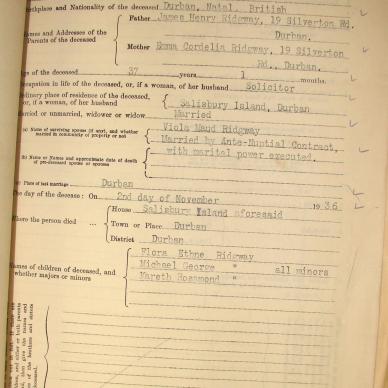 Birthplace and Nationality of the deceased Durban, Natal. British
Names and Addresses of the Parents of the deceased
Father James Henry Ridgway, 19 Silverton Rd.
Durban.
Mother Emma Cordelia Ridgway, 19 Silverton
Rd., Durban.
Age of the deceased 37 years 1 months.
Occupation in life of the deceased, or, if a woman, of her husband Solicitor
Ordinary place of residence of the deceased,
or, if a woman, of her husband
Salisbury Island, Durban
Married or unmarried, widower or widow Married
(a) Name of surviving spouse (if any), and whether
married in community of property or not
Viola Maud Ridgway
Married by Ante-Nuptial Contract,
with marital power executed.
(b) Name or Names and approximate date of death
of pre-deceased spouse or spouses
(c) Place of last marriage Durban
The day of the decease: On 2nd day of November 1936.
Where the person died ...
House Salisbury Island aforesaid
Town or Place Durban
District Durban
Names of children of deceased, and
whether majors or minors
Flora Ethne Ridgway
Michael George " all minors
Kareth Rosamond "